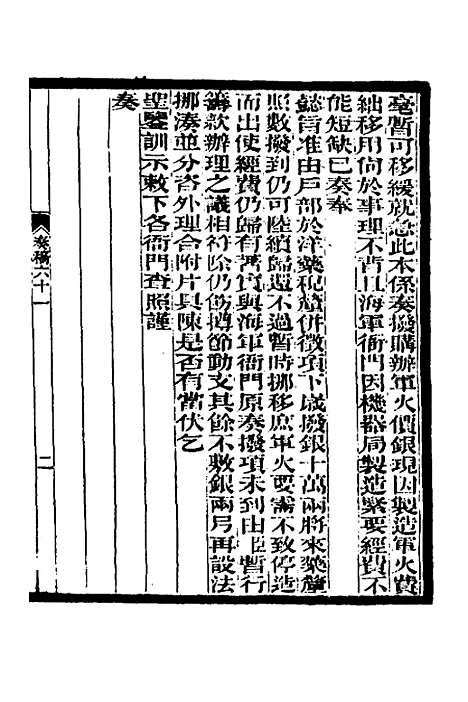 臺暫可移緩就急此本係奏撥購辦軍火價銀現因製造軍火費
絀移用尙於事理不背且海軍衙門因機器局製造緊要經費不
能短缺已奏奉
懿旨准由戶部於洋藥稅釐併徵項下歲撥銀十萬兩將來藥釐
照數撥到仍可陸續歸還不過暫時挪移庶軍火要需不致停造
而出使經費仍歸有著實與海軍衙門原奏撥項未到由臣暫行
籌款辦理之議相符除仍飭撙節動支其餘不敷銀兩另再設法
挪湊並分咨外理合附片具陳是否有當伏乞
聖鑒訓示敕下各衙門查照謹
奏
奏稿六十
二